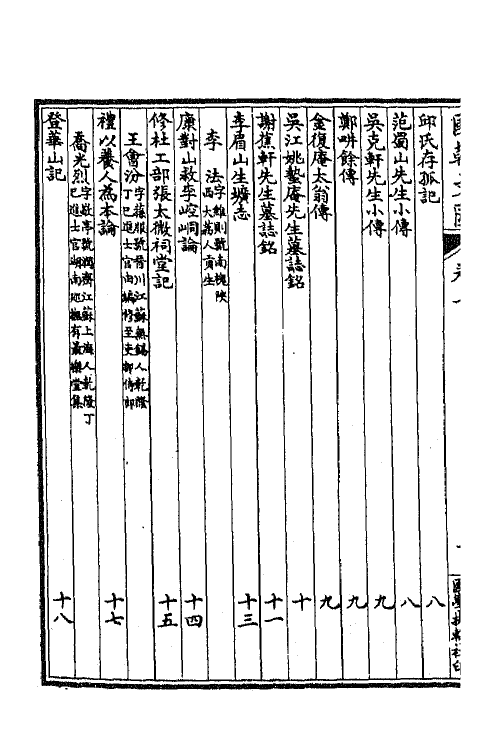 邱氏存孤記 八
范蜀山先生小傳 八
吳克軒先生小傳 九
鄭畊餘傳 九
金復庵太翁傳 九
吳江姚蟄庵先生墓誌銘 十
謝蕉軒先生墓誌銘 十一
李眉山生壙志 十三
李法 字維則號南槐陝
西大荔人貢生
康對山救李崆峒論 十四
修杜工部張太微祠堂記 十五
王會汾 字蓀服號晉川江蘇無錫人乾隆
丁巳進士官由編修至吏部侍郎
禮以養人為本論 十七
喬光烈 字敬亭號潤齋江蘇上海人乾隆丁
巳進士官湖南巡撫有最樂堂集
登華山記 十八